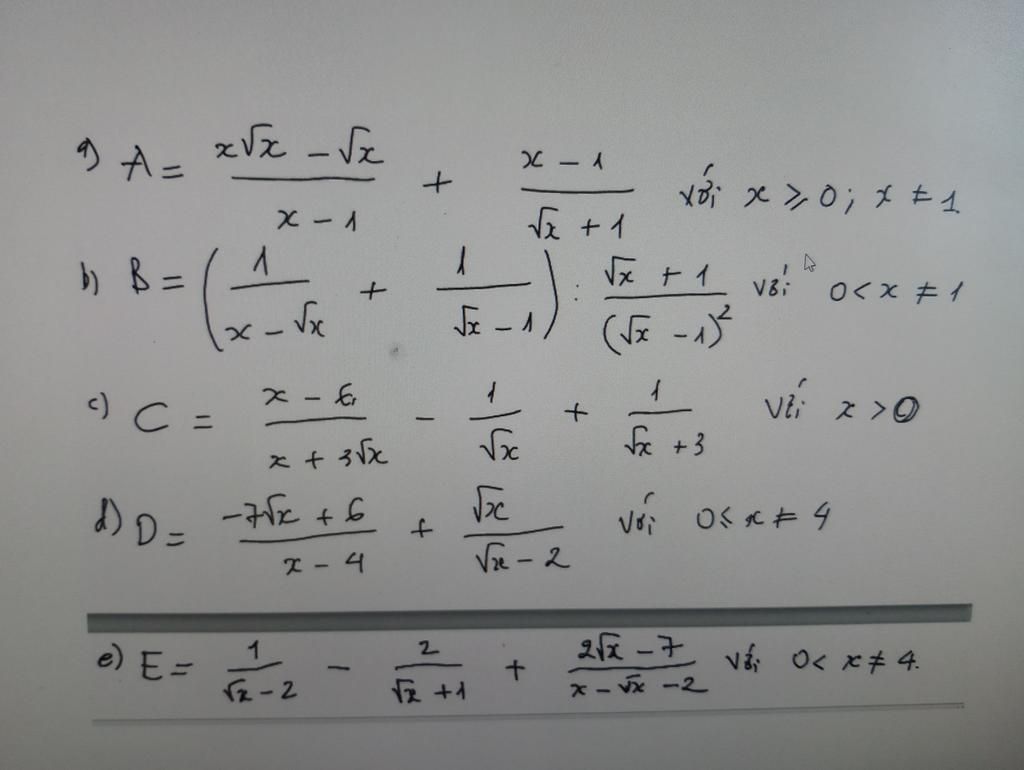 a) A = (x√x - √x)/(x - 1) + (x - 1)/(√x + 1) với x ⩾ 0; x ≠ 1
b) B = (1/(x - √x) + 1/(√x - 1)) : (√x + 1)/(√x - 1)² với 0 < x ≠ 1
c) C = (x - 6)/(x + 3√x) - 1/√x + 1/(√x + 3) với x > 0
d) D = (-7√x + 6)/(x - 4) + √x/(√x - 2) với 0 ≤ x ≠ 4
e) E = 1/(√x - 2) - 2/(√x + 1) + (2√x - 7)/(x - √x - 2) với 0 < x ≠ 4.